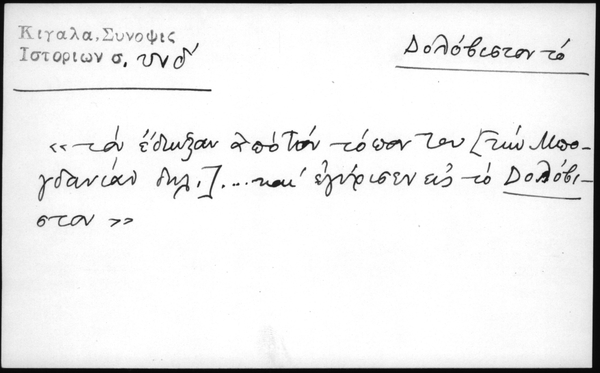 Κιγαλα, Συνοψις
Ιστοριων σ. υνδ'
Δολόβιστον τό
«τὸν ἔδιωξαν ἀπὸ τὸν τόπον του [τὴν Μπο-
γδανίαν δηλ.]....καὶ ἐγύρισεν εἰς τὸ Δολόβι-
στον»